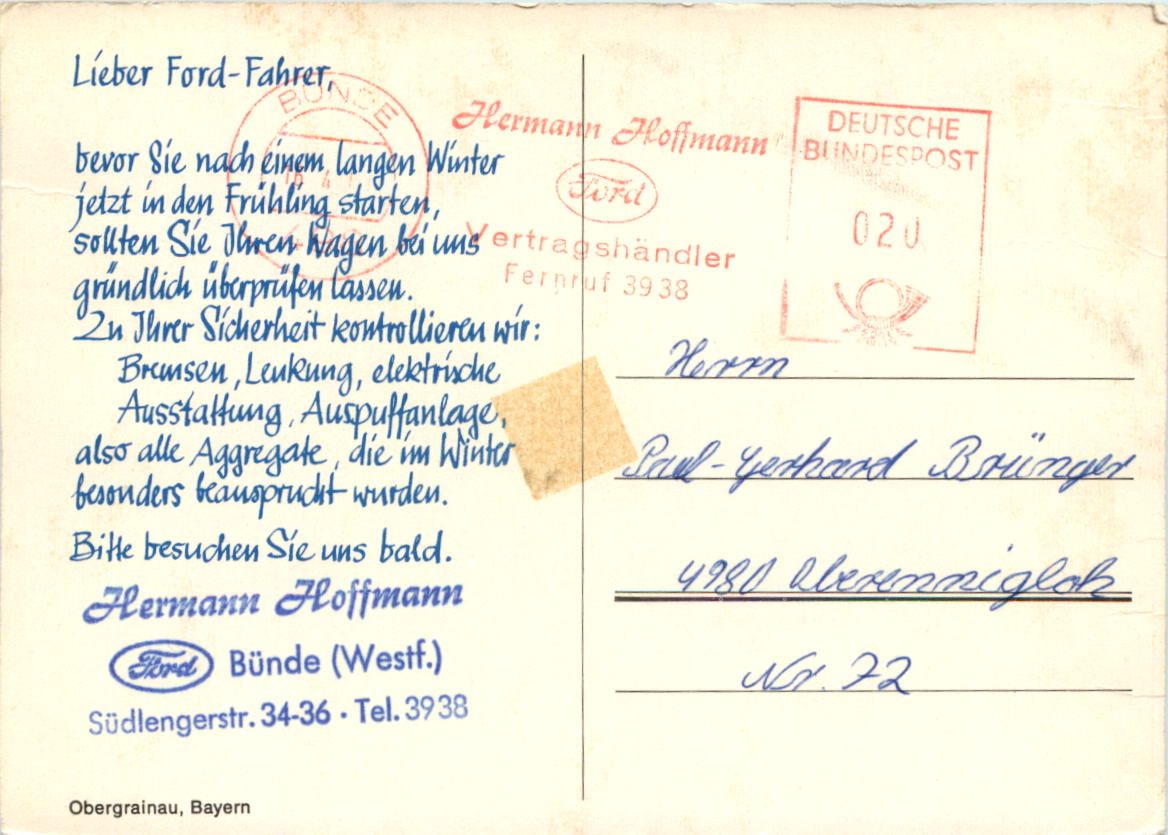 Lieber Ford-Fahrer,
bevor Sie nach einem langen Winter
jetzt in den Frühling starten,
sollten Sie Ihren Wagen bei uns
gründlich überprüfen lassen.
Zu Ihrer Sicherheit kontrollieren wir:
Bremsen, Lenkung, elektrische
Ausstattung, Auspuffanlage,
also alle Aggregate, die im Winter
besonders beansprucht wurden.
Bitte besuchen Sie uns bald.
Hermann Hoffmann
Ford Bünde (Westf.)
Südlengerstr. 34-36 · Tel. 3938
Obergrainau, Bayern
BÜNDE
16. 4
Hermann Hoffmann
Ford
Vertragshändler
Fernruf 3938
DEUTSCHE
BUNDESPOST
020
Herrn
Paul-Gerhard Brünger
4980 Oberennigloh
Nr. 72